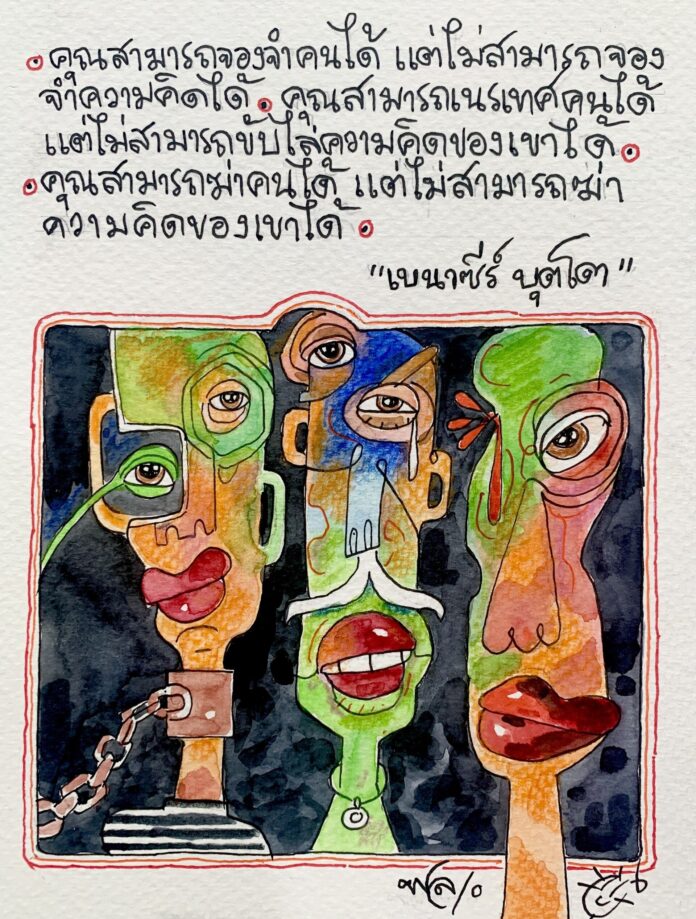 คุณสามารถจองจำคนได้ แต่ไม่สามารถจอง
จำความคิดได้ คุณสามารถเนรเทศคนได้
แต่ไม่สามารถขับไล่ความคิดของเขาได้
คุณสามารถฆ่าคนได้ แต่ไม่สามารถฆ่า
ความคิดของเขาได้
"เบนาซีร์ บุตโต"